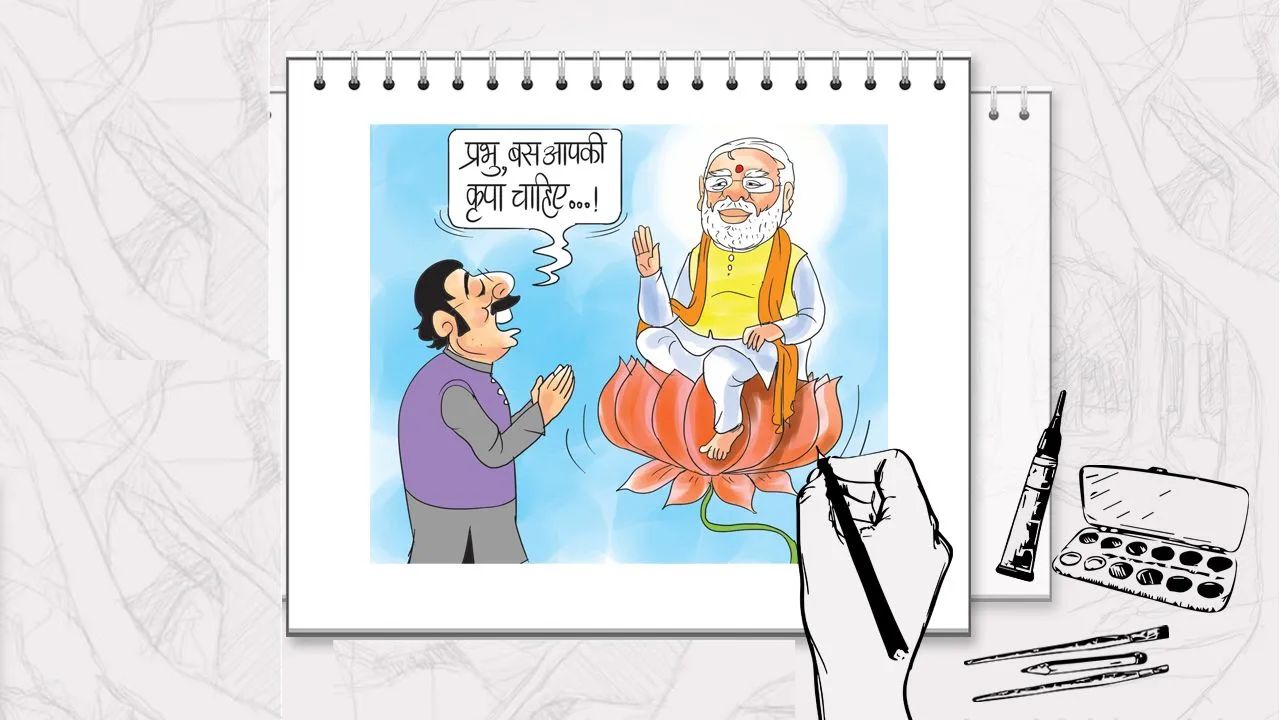 प्रभु, बस आपकी
कृपा चाहिए...!